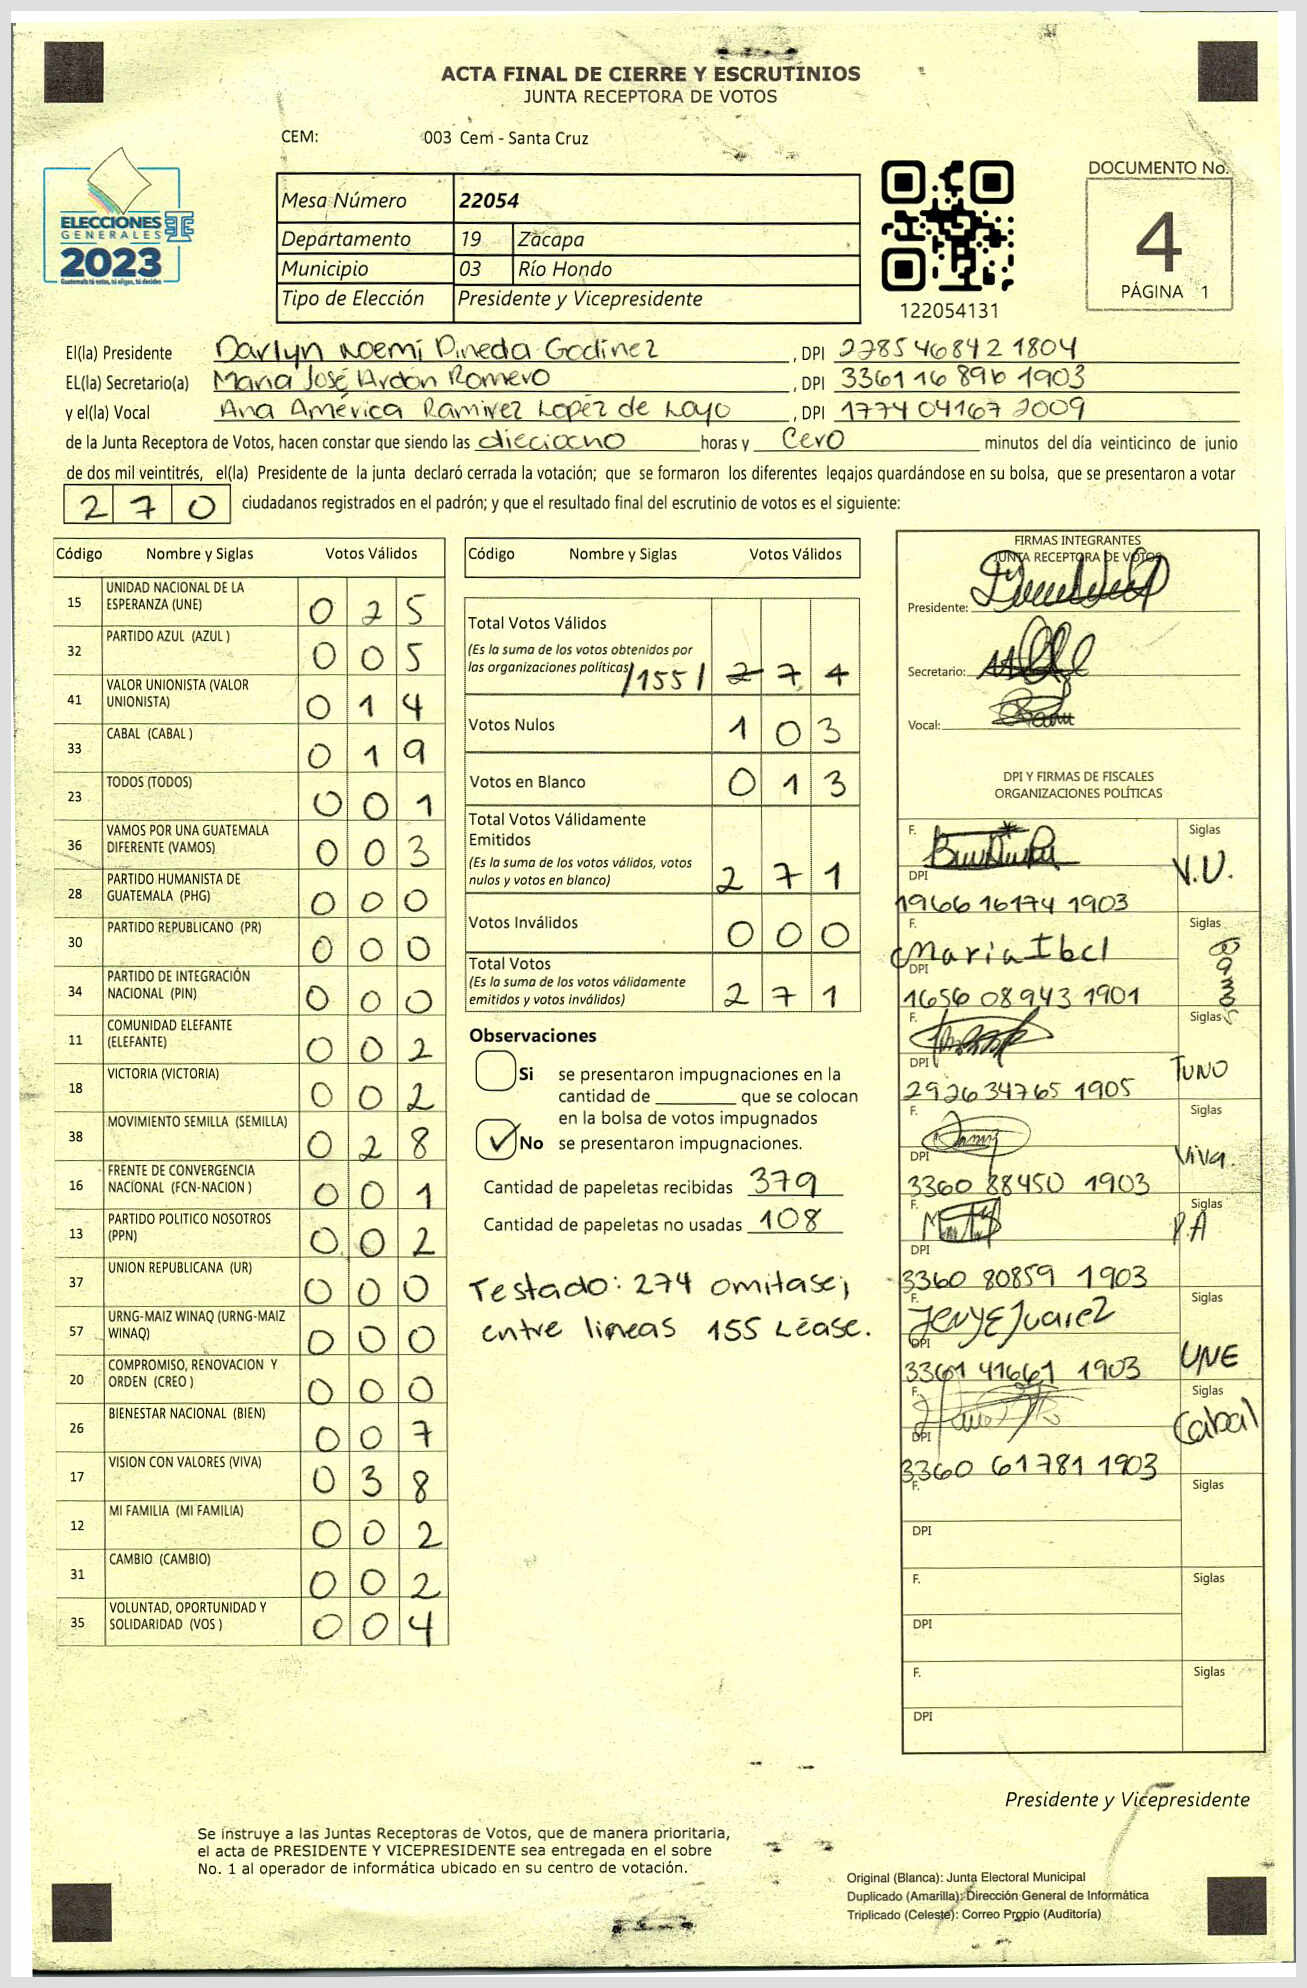 ACTA FINAL DE CIERRE Y ESCRUTINIOS
JUNTA RECEPTORA DE VOTOS
CEM: 003 Cem - Santa Cruz
ELECCIONES
GENERALES
2023
Guatemala tú votas, tú eliges, tú decides
Mesa Número 22054
Departamento 19 Zacapa
Municipio 03 Río Hondo
Tipo de Elección Presidente y Vicepresidente
122054131
DOCUMENTO No.
4
PÁGINA 1
El(la) Presidente Darlyn Noemí Pineda Godínez , DPI 2785468421804
EL(la) Secretario(a) María José Ardón Romero , DPI 3361168961903
y el(la) Vocal Ana América Ramirez Lopéz de Loyo , DPI 1774041672009
de la Junta Receptora de Votos, hacen constar que siendo las dieciocho horas y Cero minutos del día veinticinco de junio
de dos mil veintitrés, el(la) Presidente de la junta declaró cerrada la votación; que se formaron los diferentes legajos guardándose en su bolsa, que se presentaron a votar
270 ciudadanos registrados en el padrón; y que el resultado final del escrutinio de votos es el siguiente:
Código Nombre y Siglas Votos Válidos
15 UNIDAD NACIONAL DE LA ESPERANZA (UNE) 0 2 5
32 PARTIDO AZUL (AZUL ) 0 0 5
41 VALOR UNIONISTA (VALOR UNIONISTA) 0 1 4
33 CABAL (CABAL ) 0 1 9
23 TODOS (TODOS) 0 0 1
36 VAMOS POR UNA GUATEMALA DIFERENTE (VAMOS) 0 0 3
28 PARTIDO HUMANISTA DE GUATEMALA (PHG) 0 0 0
30 PARTIDO REPUBLICANO (PR) 0 0 0
34 PARTIDO DE INTEGRACIÓN NACIONAL (PIN) 0 0 0
11 COMUNIDAD ELEFANTE (ELEFANTE) 0 0 2
18 VICTORIA (VICTORIA) 0 0 2
38 MOVIMIENTO SEMILLA (SEMILLA) 0 2 8
16 FRENTE DE CONVERGENCIA NACIONAL (FCN-NACION ) 0 0 1
13 PARTIDO POLITICO NOSOTROS (PPN) 0 0 2
37 UNION REPUBLICANA (UR) 0 0 0
57 URNG-MAIZ WINAQ (URNG-MAIZ WINAQ) 0 0 0
20 COMPROMISO, RENOVACION Y ORDEN (CREO ) 0 0 0
26 BIENESTAR NACIONAL (BIEN) 0 0 7
17 VISION CON VALORES (VIVA) 0 3 8
12 MI FAMILIA (MI FAMILIA) 0 0 2
31 CAMBIO (CAMBIO) 0 0 2
35 VOLUNTAD, OPORTUNIDAD Y SOLIDARIDAD (VOS ) 0 0 4
Código Nombre y Siglas Votos Válidos
Total Votos Válidos
(Es la suma de los votos obtenidos por
las organizaciones políticas) /155/ 2 7 4
Votos Nulos 1 0 3
Votos en Blanco 0 1 3
Total Votos Válidamente
Emitidos
(Es la suma de los votos válidos, votos
nulos y votos en blanco) 2 7 1
Votos Inválidos 0 0 0
Total Votos
(Es la suma de los votos válidamente
emitidos y votos inválidos) 2 7 1
Observaciones
Si se presentaron impugnaciones en la
cantidad de ________ que se colocan
en la bolsa de votos impugnados
No se presentaron impugnaciones.
Cantidad de papeletas recibidas 379
Cantidad de papeletas no usadas 108
Testado: 274 omitase;
entre lineas 155 Léase.
FIRMAS INTEGRANTES
JUNTA RECEPTORA DE VOTOS
Presidente:
Secretario:
Vocal:
DPI Y FIRMAS DE FISCALES
ORGANIZACIONES POLÍTICAS
F. Siglas
V.U.
DPI
1966 16174 1903
F. Siglas
María Ibel
DPI
1656 08943 1901
F. Siglas
DPI
TUNO
2926 34765 1905
F. Siglas
DPI
Viva.
3360 88450 1903
F. Siglas
P.A
DPI
3360 80859 1903
F. Siglas
Jenye Juarez
DPI
UNE
3361 41661 1903
F. Siglas
Cabal
DPI
3360 61781 1903
F. Siglas
DPI
F. Siglas
DPI
F. Siglas
DPI
Presidente y Vicepresidente
Se instruye a las Juntas Receptoras de Votos, que de manera prioritaria,
el acta de PRESIDENTE Y VICEPRESIDENTE sea entregada en el sobre
No. 1 al operador de informática ubicado en su centro de votación.
Original (Blanca): Junta Electoral Municipal
Duplicado (Amarilla): Dirección General de Informática
Triplicado (Celeste): Correo Propio (Auditoría)